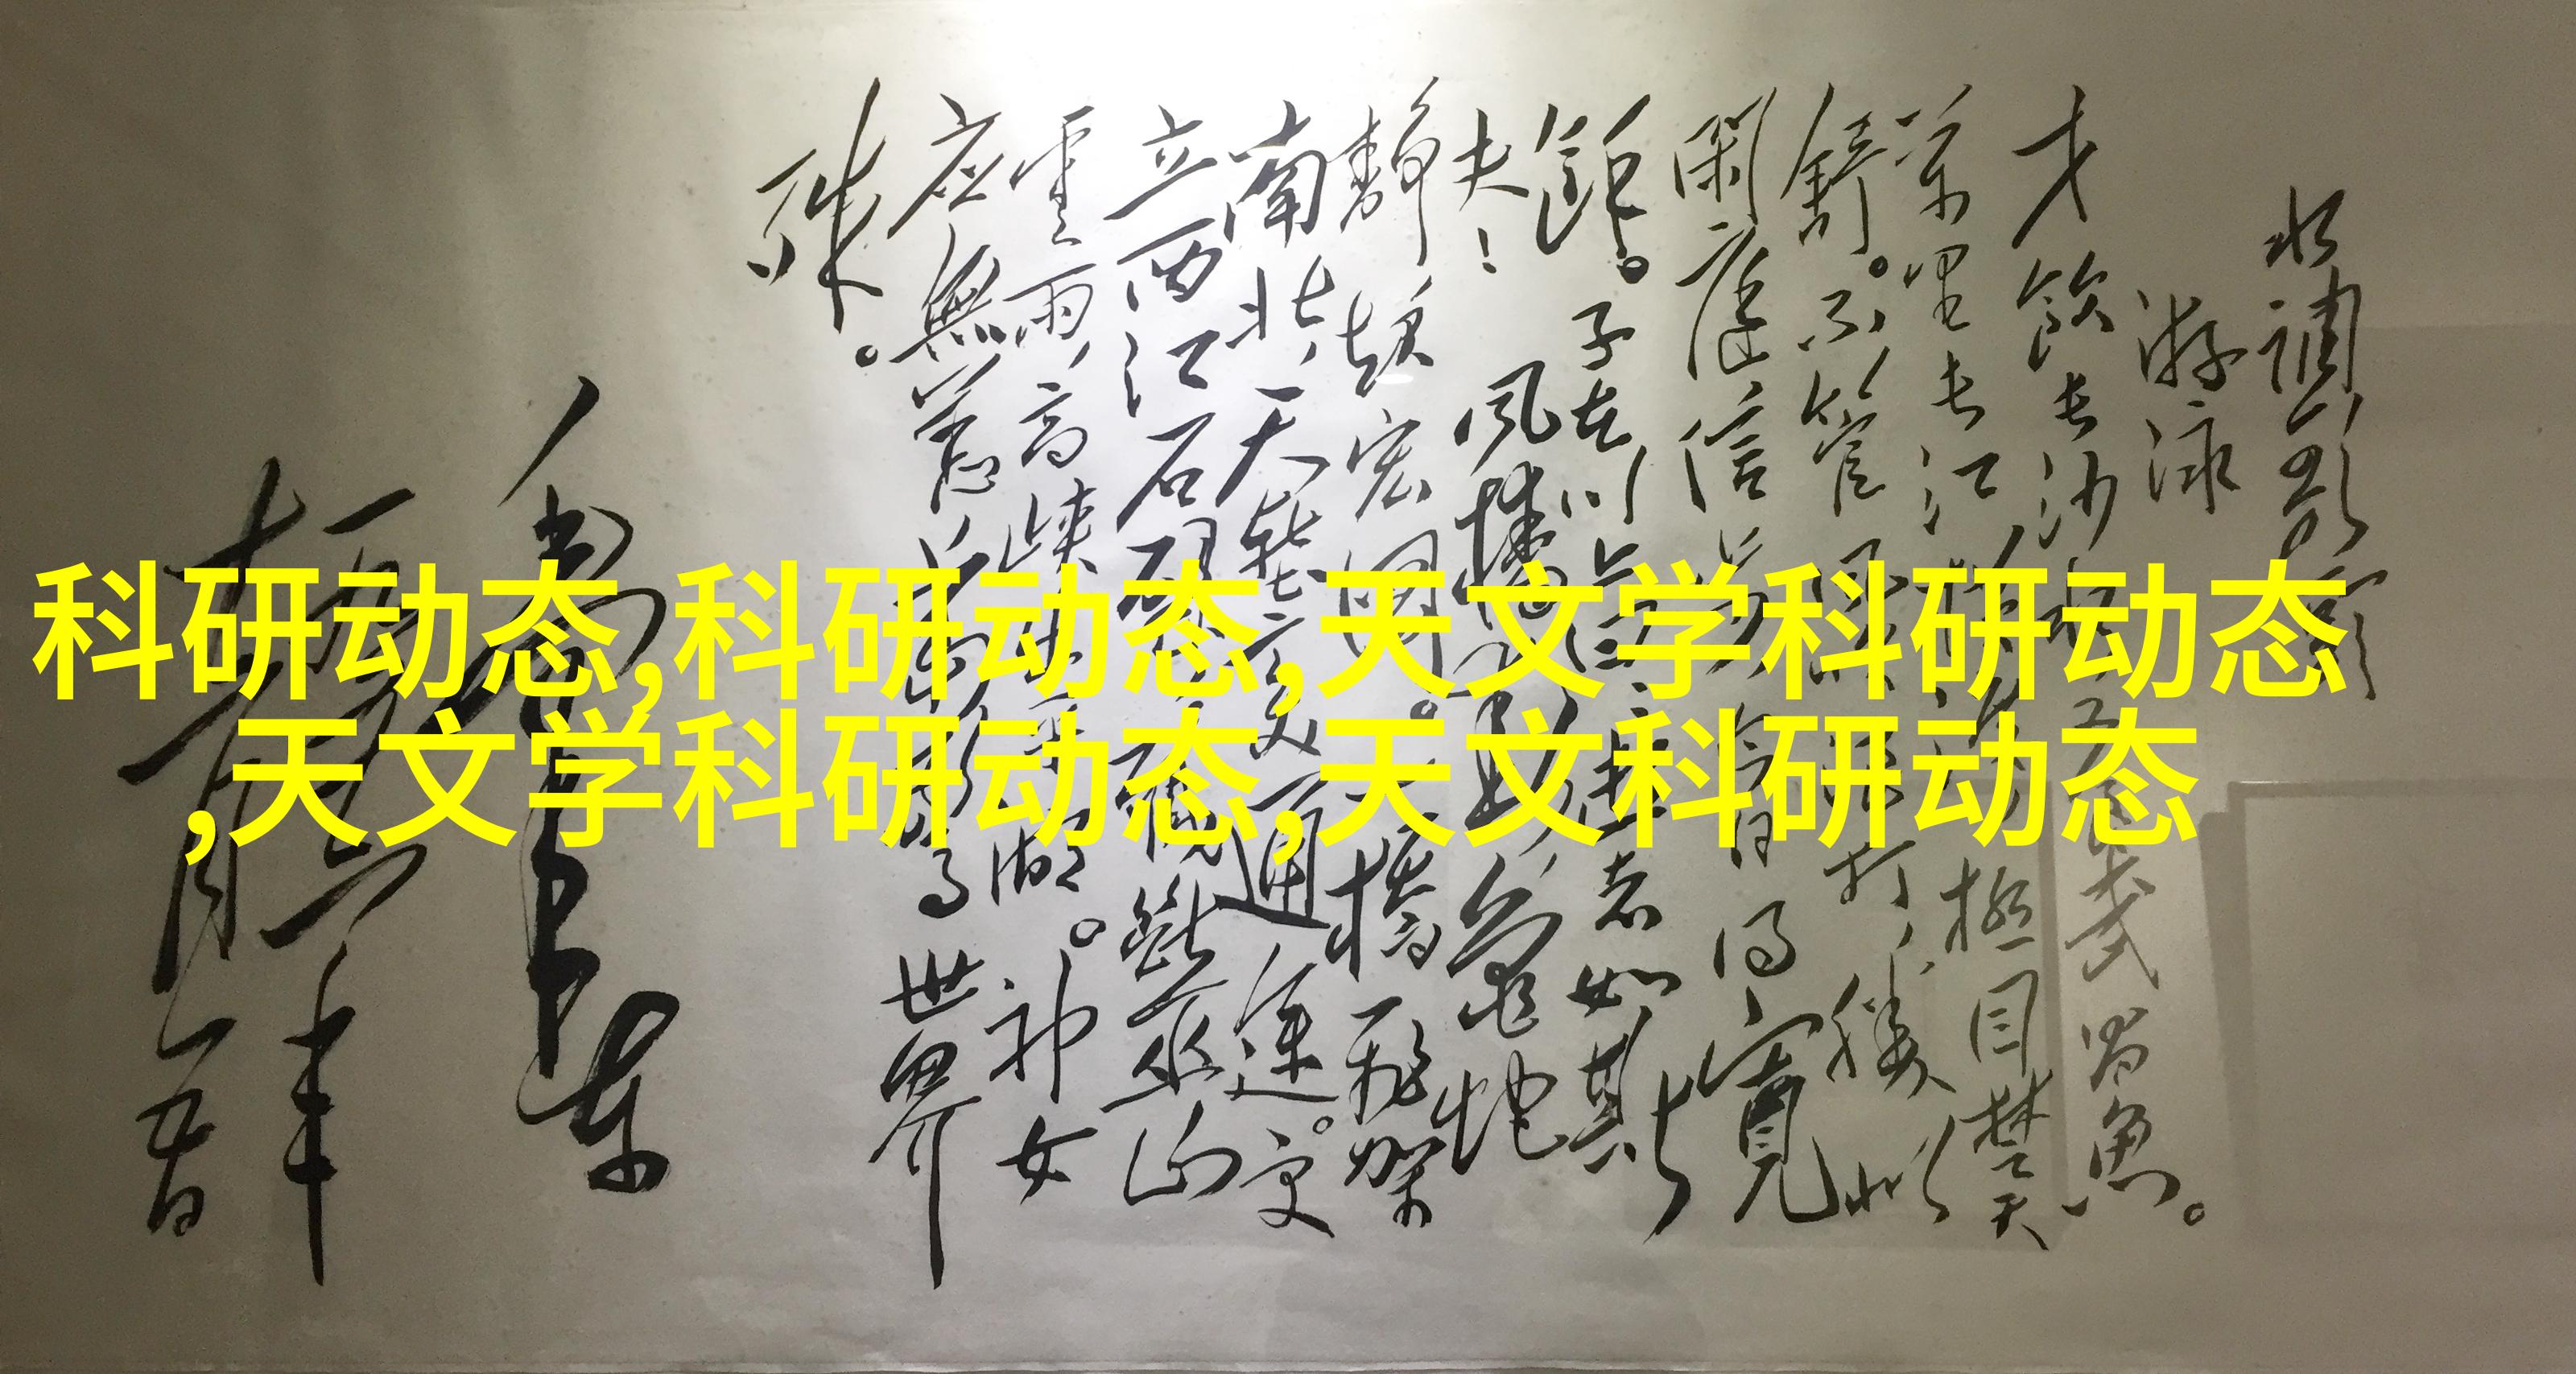 科研动态,科研动态,天文学科研动态
,天文学科研动态,天文科研动态
水调歌头
游泳
才飲长沙水又食武昌魚。
萬里长江橫渡極目楚天
舒。不管风吹浪打，勝似
閑庭信步今日得寬
餘。子在川上曰：逝者如斯
夫！风檣动，龜蛇
靜，起宏圖。一橋飛架
南北，天塹变通途。更
立西江石壁，截斷巫山
雲雨，高峡出平湖。神女
应無恙，当驚世界
殊。